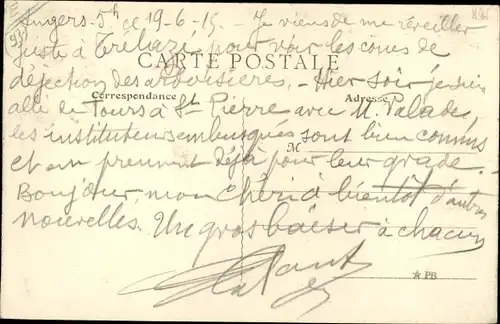 Angers. 5h ce 19-6-15. Je viens de me réveiller
juste à Trélazé pour voir les cônes de
CARTE POSTALE
déjection des ardoisières. Hier soir je suis
Correspondance
Adresse
allé de Tours à St Pierre avec M. Palade,
les instituteurs embusqués sont bien connus
M
et en prennent déjà pour leur grade.
Bonjour, mon chéri à bientôt d'autres
nouvelles. Un gros baiser à chacun
PB